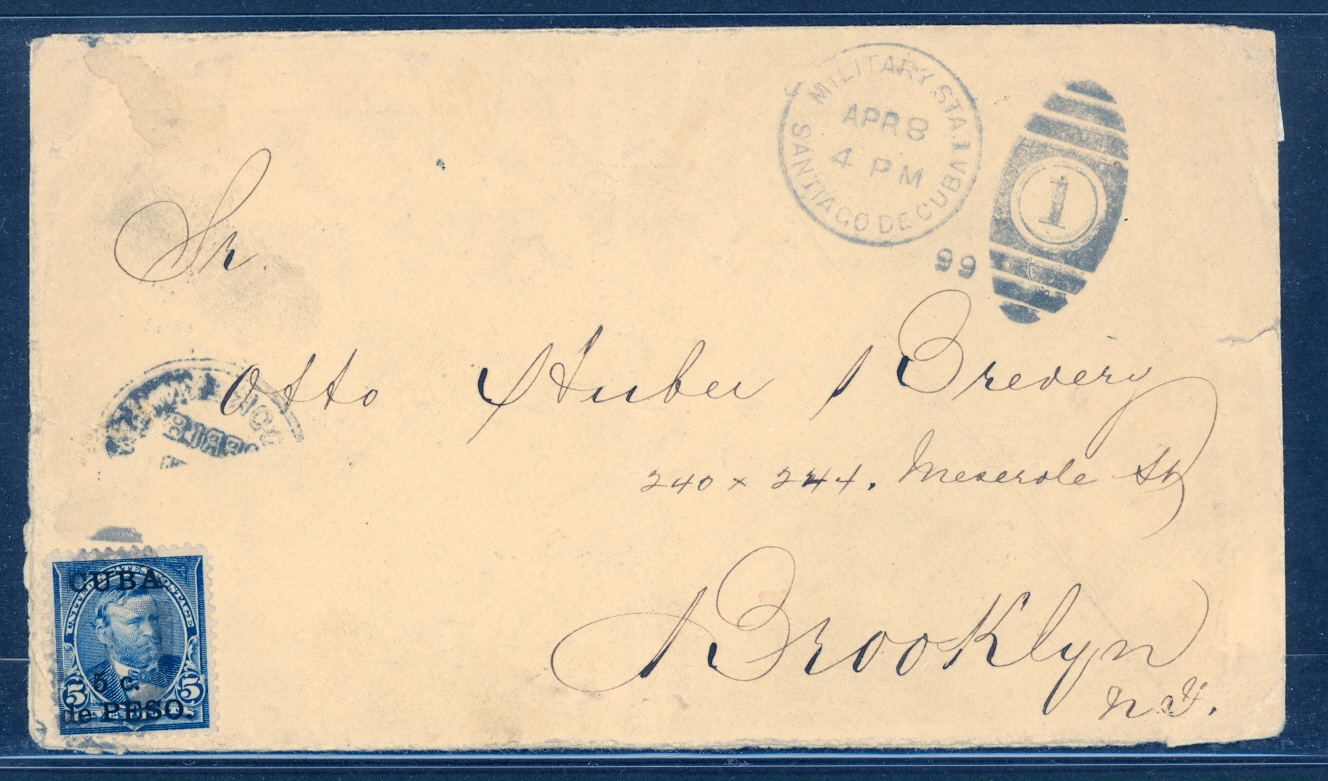 MILITARY STA. 1
APR 8
4 PM
SANTIAGO DE CUBA
99
1
Sr.
Otto Huber Brevery
240 x 244. Meserole St
Brooklyn
N.Y.
CUBA
UNITED STATES POSTAGE
5 c.
5 5
de PESO.